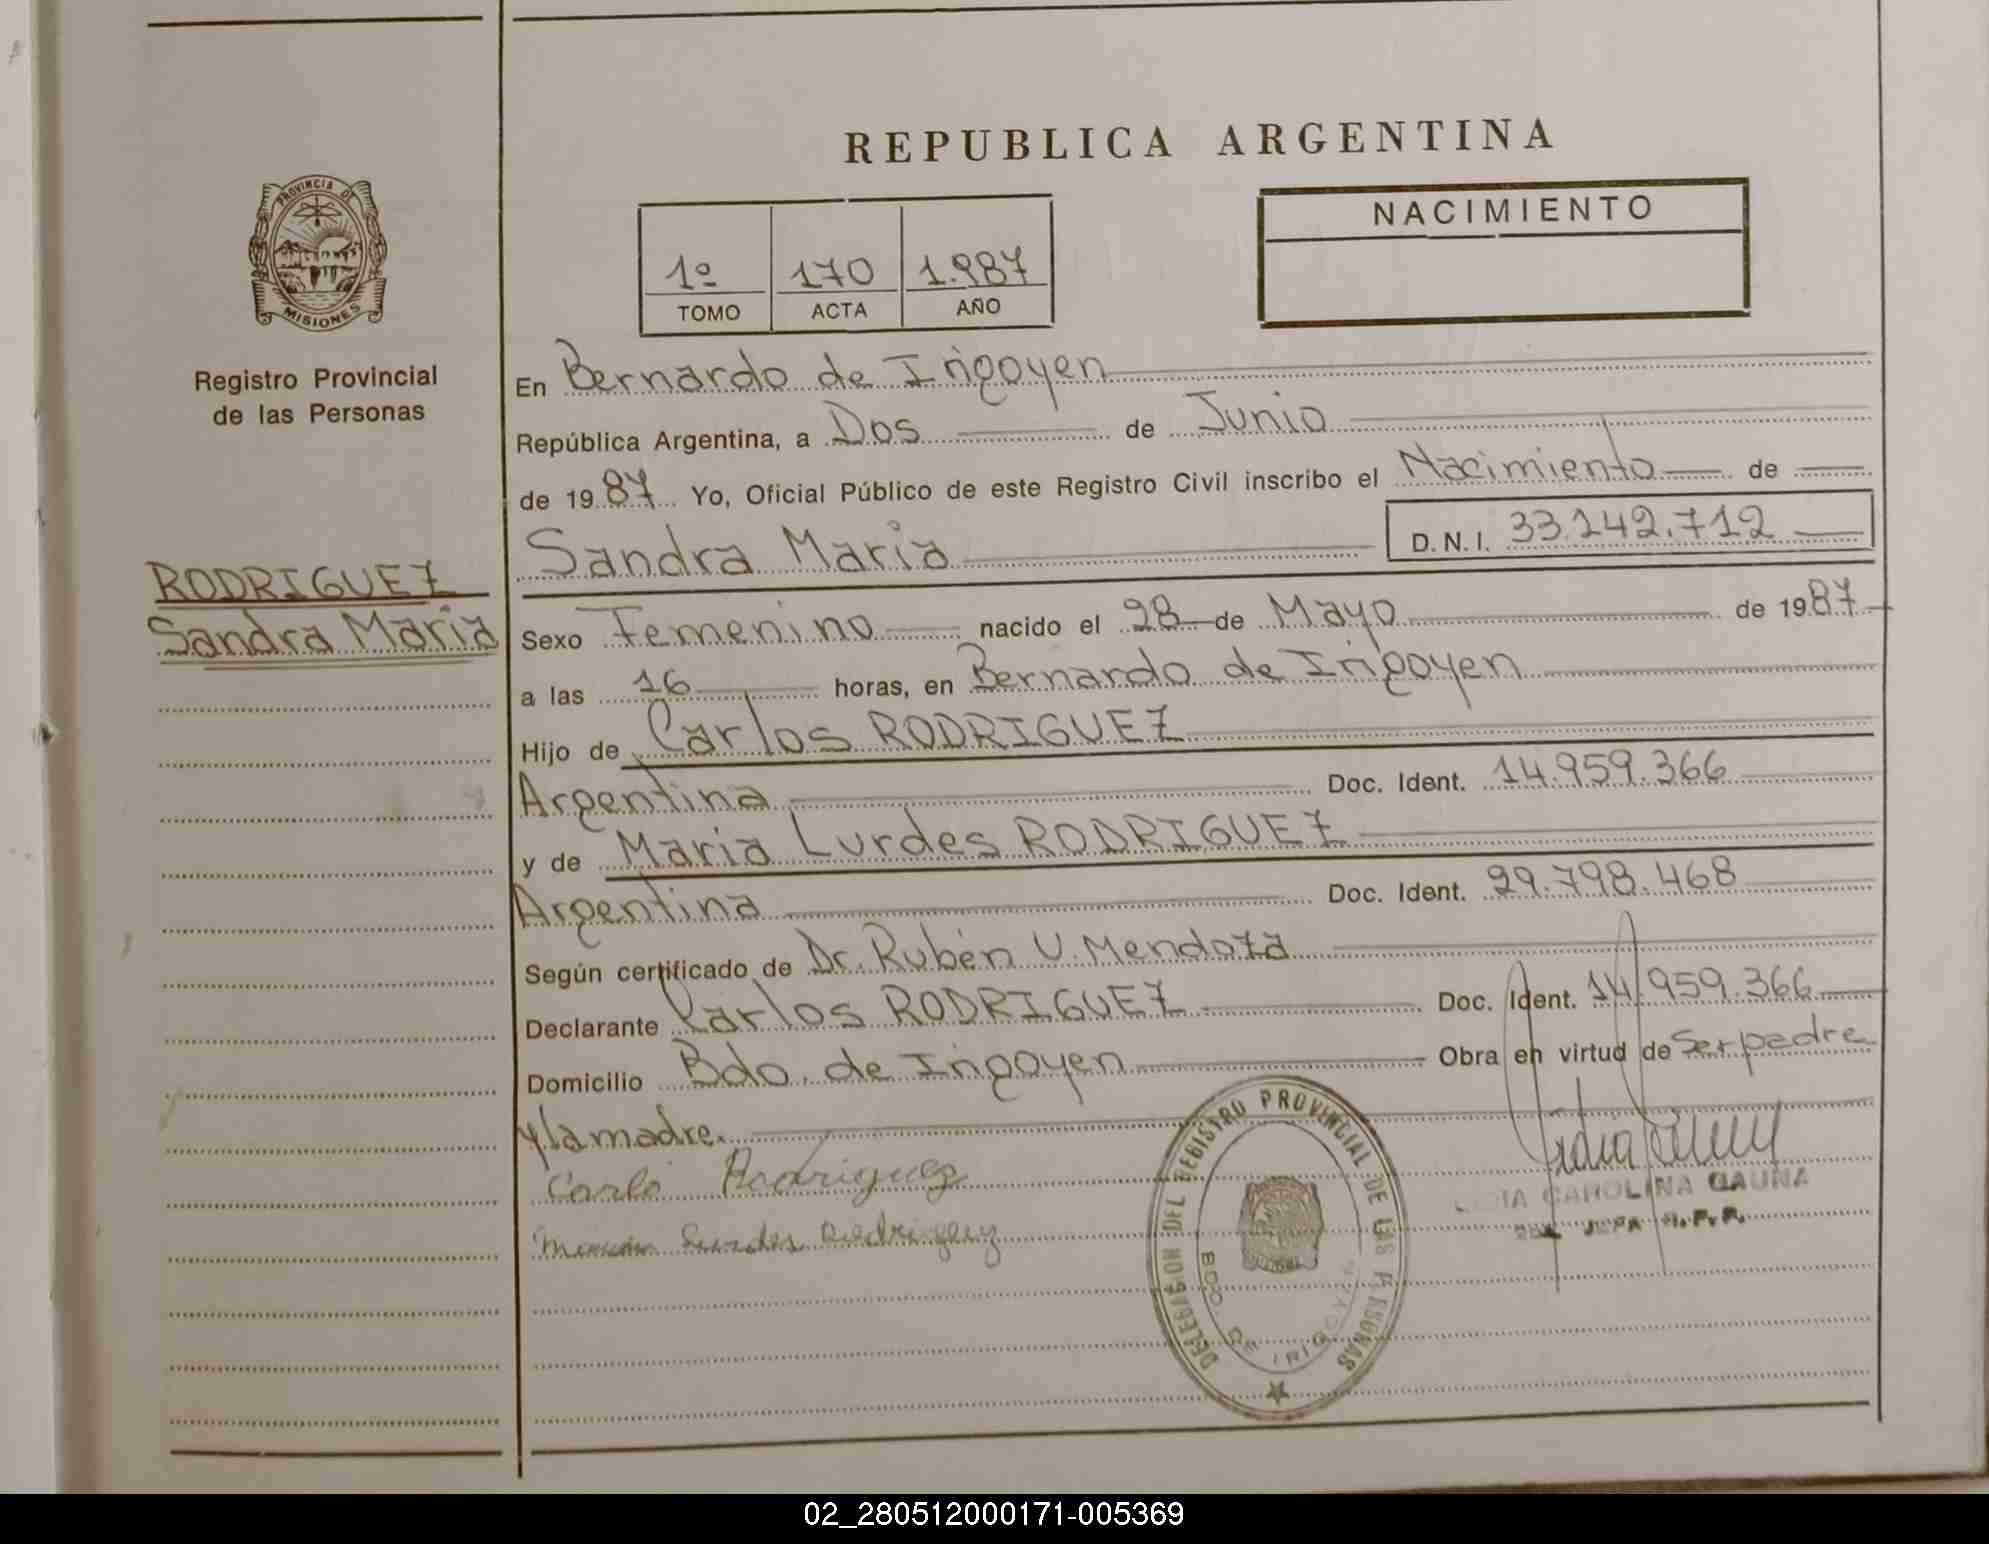 REPUBLICA ARGENTINA
PROVINCIA DE
MISIONES
Registro Provincial
de las Personas
RODRIGUEZ
Sandra Maria
1º 170 1.987
TOMO ACTA AÑO
NACIMIENTO
En Bernardo de Irigoyen
República Argentina, a Dos de Junio
de 1987 Yo, Oficial Público de este Registro Civil inscribo el Nacimiento de
Sandra Maria D.N.I. 33.142.712
Sexo Femenino nacido el 28 de Mayo de 1987
a las 16 horas, en Bernardo de Irigoyen
Hijo de Carlos RODRIGUEZ
Argentina Doc. Ident. 14.959.366
y de Maria Lurdes RODRIGUEZ
Argentina Doc. Ident. 29.798.468
Según certificado de Dr. Rubén U. Mendoza
Declarante Carlos RODRIGUEZ Doc. Ident. 14.959.366
Domicilio Bdo. de Irigoyen Obra en virtud de Ser padre
y la madre.
Carlo Rodriguez
Lurdes Rodriguez
DELEGASION DEL REGISTRO PROVINCIAL DE LAS PERSONAS
BDO. DE IRIGOYEN
CAROLINA GAUNA
JEFA R.P.P.
02_280512000171-005369